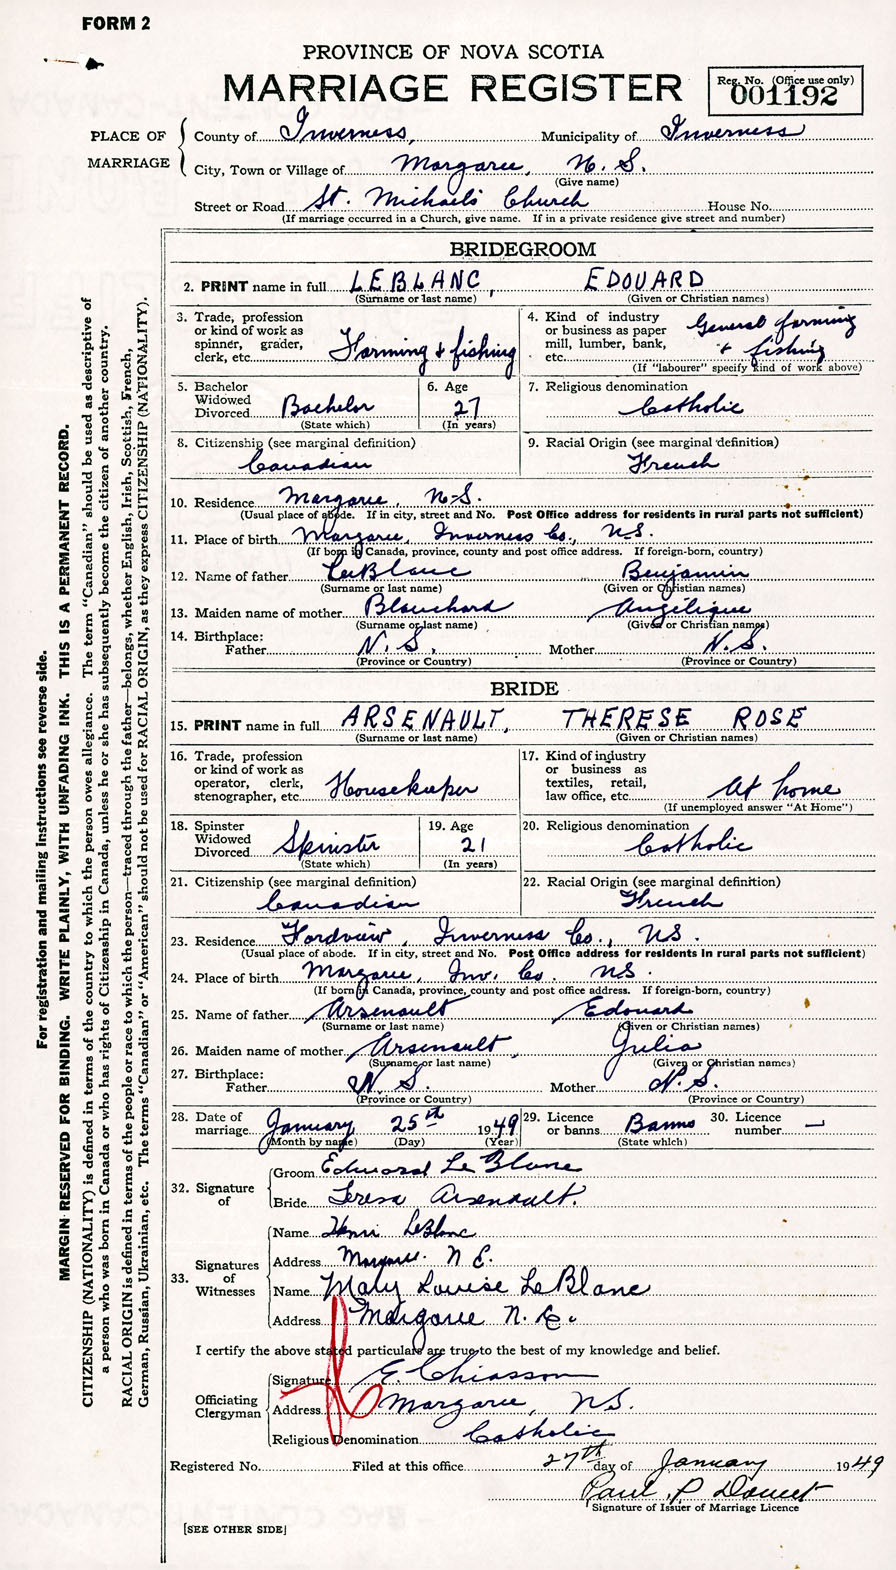 FORM 2
PROVINCE OF NOVA SCOTIA
MARRIAGE REGISTER
Reg. No. (Office use only)
001192
PLACE OF MARRIAGE
County of Inverness, Municipality of Inverness
City, Town or Village of Margaree, N. S.
(Give name)
Street or Road St. Michaels Church House No.
(If marriage occurred in a Church, give name. If in a private residence give street and number)
BRIDEGROOM
2. PRINT name in full LEBLANC, EDOUARD
(Surname or last name) (Given or Christian names)
3. Trade, profession or kind of work as spinner, grader, clerk, etc. Farming & fishing
4. Kind of industry or business as paper mill, lumber, bank, etc. General farming & fishing
(If "labourer" specify kind of work above)
5. Bachelor Widowed Divorced Bachelor
(State which)
6. Age 27
(In years)
7. Religious denomination
Catholic
8. Citizenship (see marginal definition)
Canadian
9. Racial Origin (see marginal definition)
French
10. Residence Margaree, N-S.
(Usual place of abode. If in city, street and No. Post Office address for residents in rural parts not sufficient)
11. Place of birth Margaree, Inverness Co., N.S.
(If born in Canada, province, county and post office address. If foreign-born, country)
12. Name of father LeBlanc Benjamin
(Surname or last name) (Given or Christian names)
13. Maiden name of mother Blanchard Angélique
(Surname or last name) (Given or Christian names)
14. Birthplace:
Father N. S. Mother N. S.
(Province or Country) (Province or Country)
BRIDE
15. PRINT name in full ARSENAULT, THERESE ROSE
(Surname or last name) (Given or Christian names)
16. Trade, profession or kind of work as operator, clerk, stenographer, etc. Housekeeper
17. Kind of industry or business as textiles, retail, law office, etc. At home
(If unemployed answer "At Home")
18. Spinster Widowed Divorced Spinster
(State which)
19. Age 21
(In years)
20. Religious denomination
Catholic
21. Citizenship (see marginal definition)
Canadian
22. Racial Origin (see marginal definition)
French
23. Residence Fordview, Inverness Co., N.S.
(Usual place of abode. If in city, street and No. Post Office address for residents in rural parts not sufficient)
24. Place of birth Margaree, Inv. Co. N.S.
(If born in Canada, province, county and post office address. If foreign-born, country)
25. Name of father Arsenault Edouard
(Surname or last name) (Given or Christian names)
26. Maiden name of mother Arsenault, Julia
(Surname or last name) (Given or Christian names)
27. Birthplace:
Father N. S. Mother N. S.
(Province or Country) (Province or Country)
28. Date of marriage January 25th 1949
(Month by name) (Day) (Year)
29. Licence or banns Banns
(State which)
30. Licence number —
32. Signature of
Groom Edward LeBlanc
Bride Teresa Arsenault.
33. Signatures of Witnesses
Name Henri LeBlanc
Address Margaree. N E.
Name Mary Louise LeBlanc
Address Margaree N. E.
I certify the above stated particulars are true to the best of my knowledge and belief.
Officiating Clergyman
Signature E. Chiasson
Address Margaree, N.S.
Religious Denomination Catholic
Registered No. Filed at this office 27th day of January 1949
Paul P Doucet
Signature of Issuer of Marriage Licence
[SEE OTHER SIDE]
For registration and mailing instructions see reverse side.
MARGIN RESERVED FOR BINDING. WRITE PLAINLY, WITH UNFADING INK. THIS IS A PERMANENT RECORD.
CITIZENSHIP (NATIONALITY) is defined in terms of the country to which the person owes allegiance. The term "Canadian" should be used as descriptive of
a person who was born in Canada or who has rights of Citizenship in Canada, unless he or she has subsequently become the citizen of another country.
RACIAL ORIGIN is defined in terms of the people or race to which the person—traced through the father—belongs, whether English, Irish, Scottish, French,
German, Russian, Ukrainian, etc. The terms "Canadian" or "American" should not be used for RACIAL ORIGIN, as they express CITIZENSHIP (NATIONALITY).